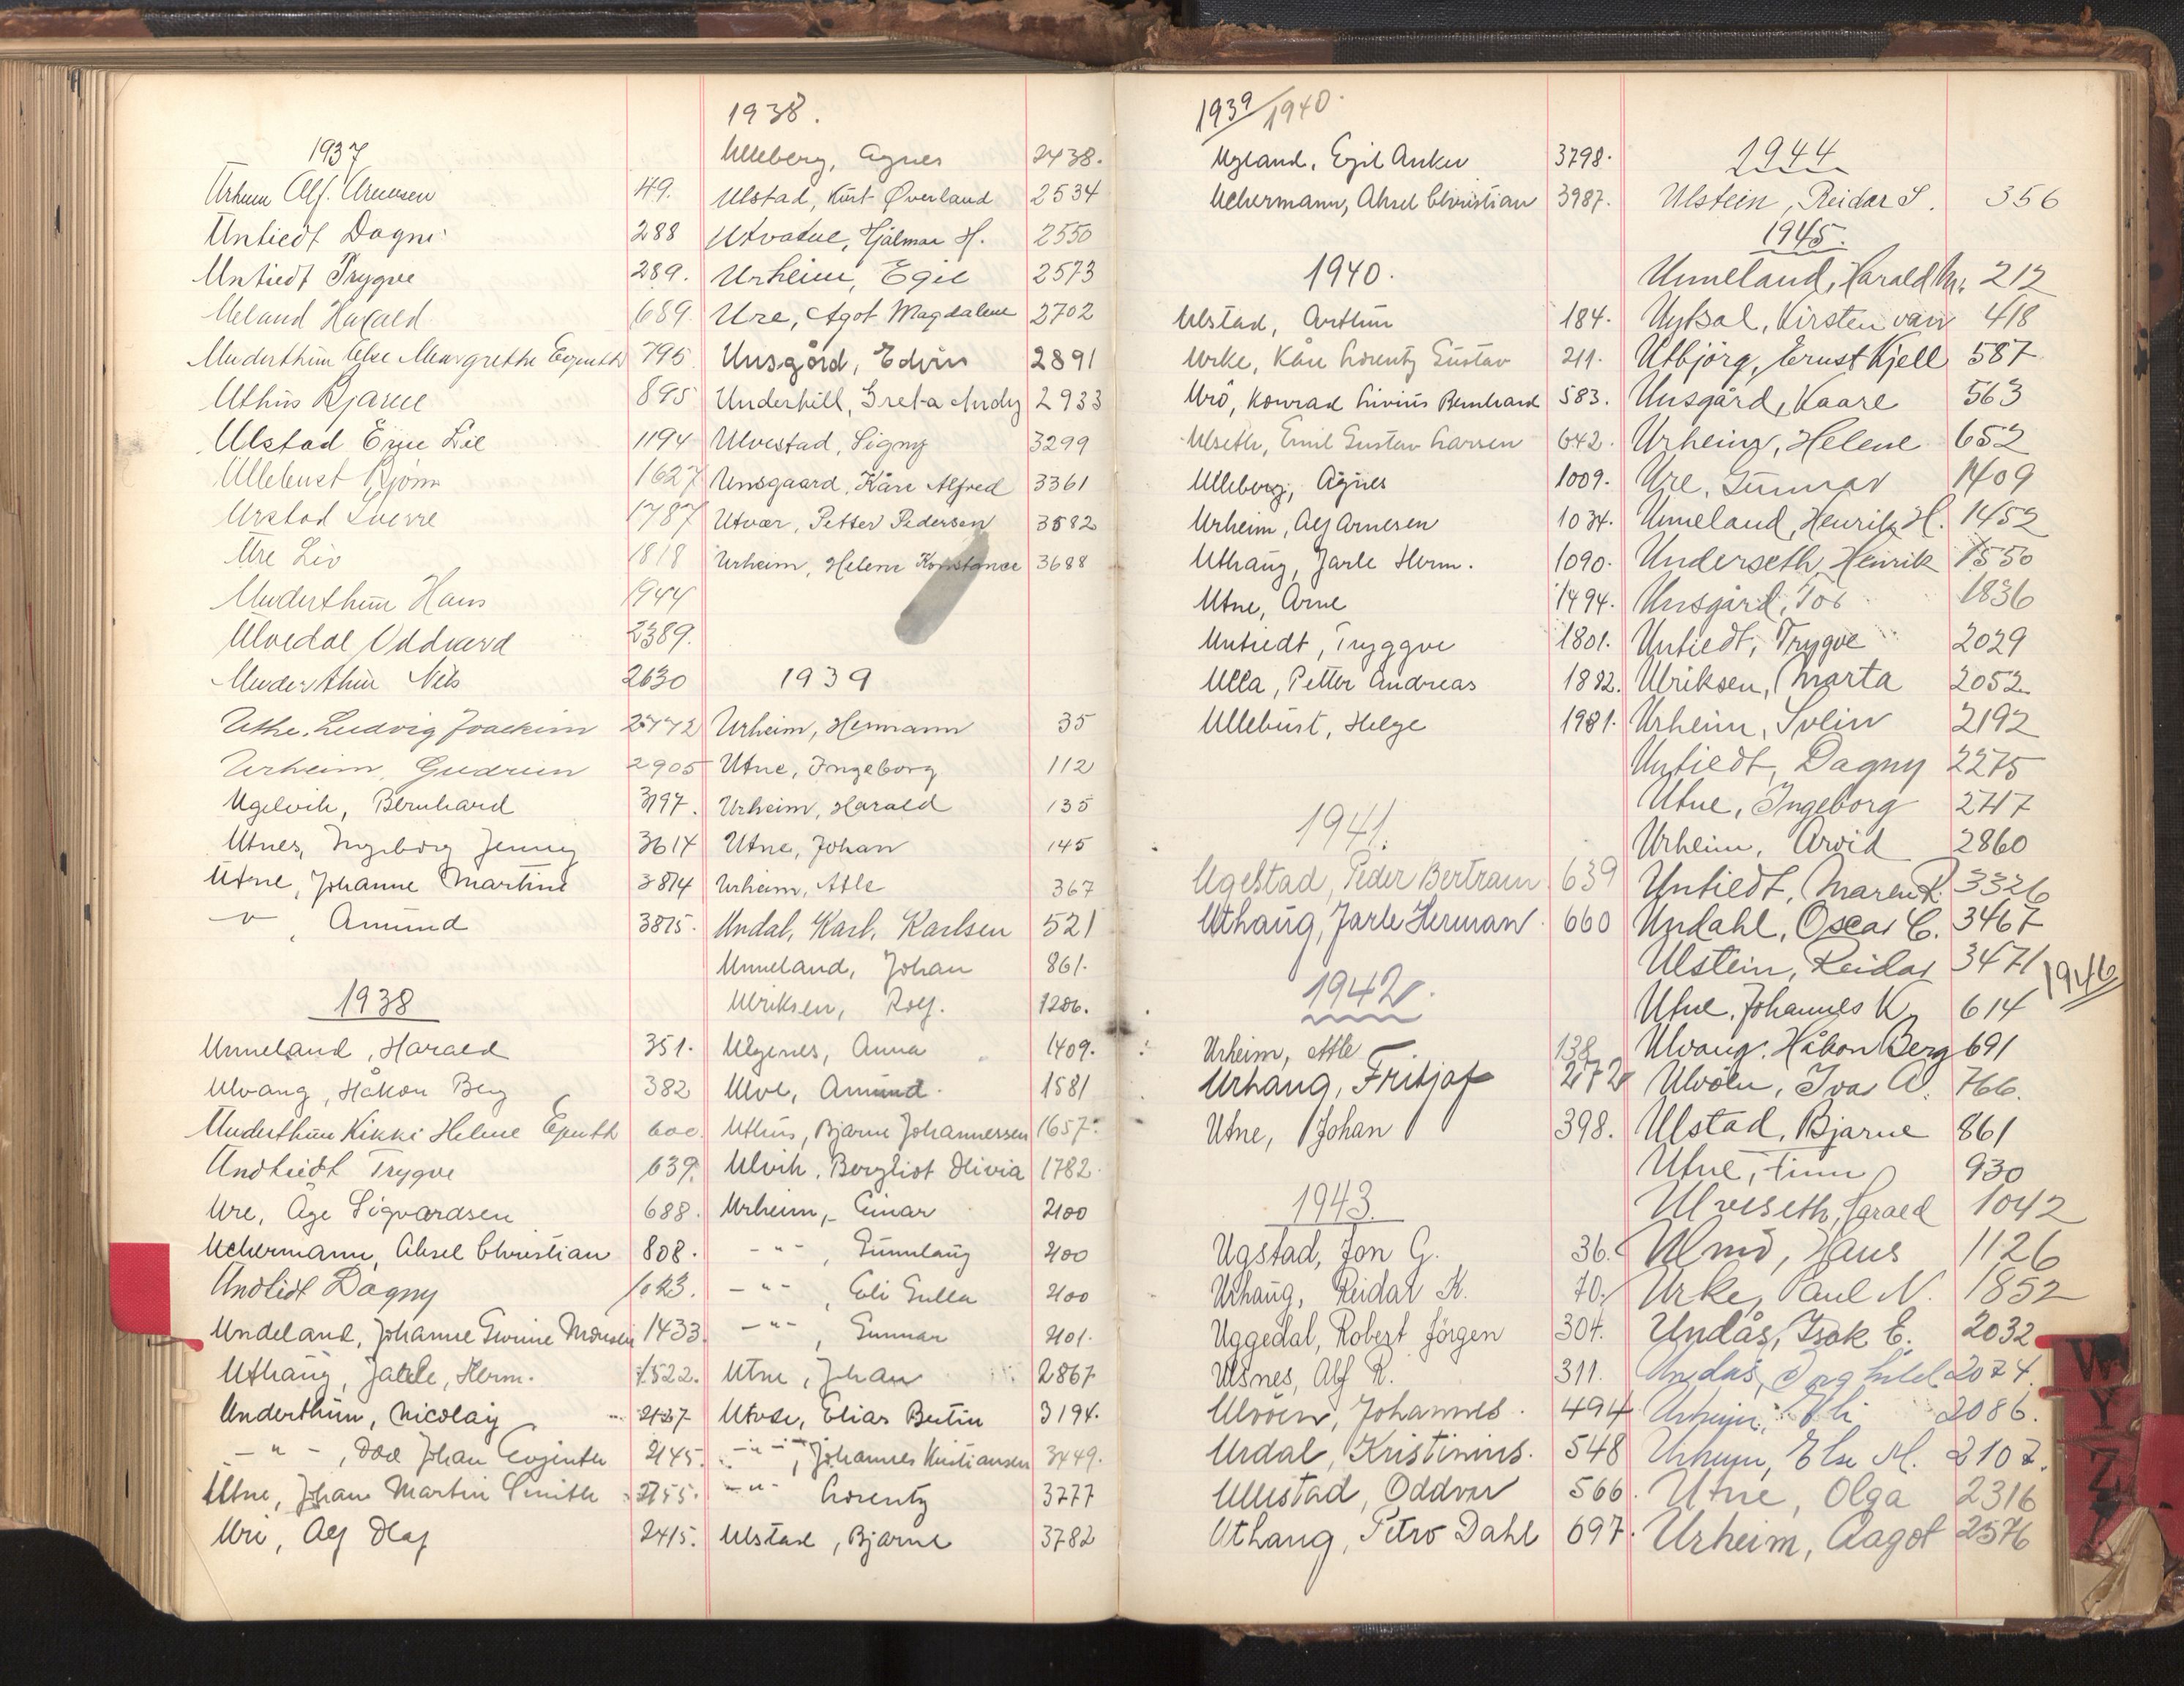 1937
Urheim Alf. Arnesen 49.
Untiedt Dagni 288
Untiedt Trygve 289.
Ueland Harald 689
Underthun Else Margrethe 795
Uthus Bjarne 895
Ulstad Erne Lie 1194
Ullebust Bjørn 1627
Urstad Sverre 1787
Ure Liv 1818
Underthun Hans 1944
Ulvedal Oddvard 2389.
Underthun Nils 2630
Uthe, Ludvig Joackim 2772
Urheim, Gudrun 2905
Ugelvik, Bernhard 3197.
Utnes, Ingeborg Jenny 3614
Utne, Johanne Martine 3814
-"- , Amund 3815.
1938
Unneland, Harald 351.
Ulvang, Håkon Berg 382
Underthun Kikki Helene 600.
Undtiedt Trygve 639.
Ure, Åge Sigvardsen 688.
Uchermann, Aksel Christian 808.
Undtidt Dagny 1023.
Undeland, Johanne Gurine Monsen 1433.
Uthaug, Jarle, Herm. 1522.
Underthun, Nicolay 2127
-"-, Odd Johan 2145.
Utne, Johan Martin Smith 2155.
Uri, Alf Olaf 2415.
1938.
Ulleberg, Agnes 2438.
Ulstad, Kurt Øverland 2534
Utvatne, Hjalmar H. 2550
Urheim, Egil 2573
Ure, Agot Magdalene 2702
Unsgård, Edvin 2891
Underhill, Greta Andy 2933
Ulvestad, Signy 3299
Unsgaard, Kåre Alfred 3361
Utvær, Petter Pedersen 3582
Urheim, Helene Konstance 3688
1939
Urheim, Hermann 35
Utne, Ingeborg 112
Urheim, Harald 135
Utne, Johan 145
Urheim, Atle 367
Undal, Karl, Karlsen 521
Unneland, Johan 861.
Ulriksen, Rolf. 1206.
Ulgenes, Anna 1409.
Ulve, Amund. 1581
Uthus, Bjarne Johannessen 1657.
Ulvik, Bergliot Olivia 1782.
Urheim, Einar 2100
-"- , Gunnlaug 2100
-"- , Eli Gulla 2100
-"- , Gunnar 2101.
Utne, Johan 2867
Utvær, Elias Bertin 3194.
-"-, Johannes Kristiansen 3449.
-"- Lorentz 3777
Ulstad, Bjarne 3782
1939/1940.
Ugland, Egil Anker 3798.
Uchermann, Aksel Christian 3987.
1940.
Ulstad, Arthur 184.
Urke, Kåre Lorentz Gustav 211.
Urø, Konrad Livius Bernhard 583.
Ulseth, Emil Gustav Larsen 642.
Ulleberg, Agnes 1009.
Urheim, Alf Arnesen 1034.
Uthaug, Jarle Herm. 1090.
Utne, Arne 1494.
Untiedt, Tryggve 1801.
Ulla, Petter Andreas 1882.
Ullebust, Helge 1981.
1941.
Ugelstad, Peder Bertram 639
Uthaug, Jarle Herman. 660
1942.
Urheim, Atle 138
Urhaug, Fritjof 272
Utne, Johan 398.
1943.
Ugstad, Jon G. 36.
Urhaug, Reidar K. 70.
Uggedal, Robert Jörgen 304.
Ulsnes, Alf R. 311.
Ulvöen, Johannes. 494
Urdal, Kristinius. 548
Ullestad, Oddvar 566.
Uthaug, Petro Dahl 697.
1944
Ulstein, Reidar S. 356
1945.
Unneland, Harald M. 212
Uytsal, Kirsten van 418
Utbjörg, Ernst Kjell 587
Unsgård, Kaare 563
Urheim, Helene 652
Ure, Gunnar 1409
Unneland, Henrik H. 1452
Underseth, Henrik 1550
Unsgård, Tor 1836
Untiedt, Trygve 2029
Ulriksen, Marta 2052
Urheim, Solin 2192
Untiedt, Dagny 2275
Utne, Ingeborg 2717
Urheim, Arvid 2860
Untiedt, Maren R. 3326
Undahl, Oscar C. 3467
Ulstein, Reidar 3471
1946
Utne, Johannes K. 614
Ulvang, Håkon Berg 691
Ulvöen, Ivar A. 766.
Ulstad, Bjarne 861
Utne, Finn 930
Ulveseth, Harald 1042
Ulmö, Hans 1126
Urke, Paul N. 1852
Undås, Isak E. 2032
Undås, Torghild 2074.
Urheim, Eli 2086.
Urheim, Else M. 2107.
Utne, Olga 2316
Urheim, Aagot 2576
W
Y
Z